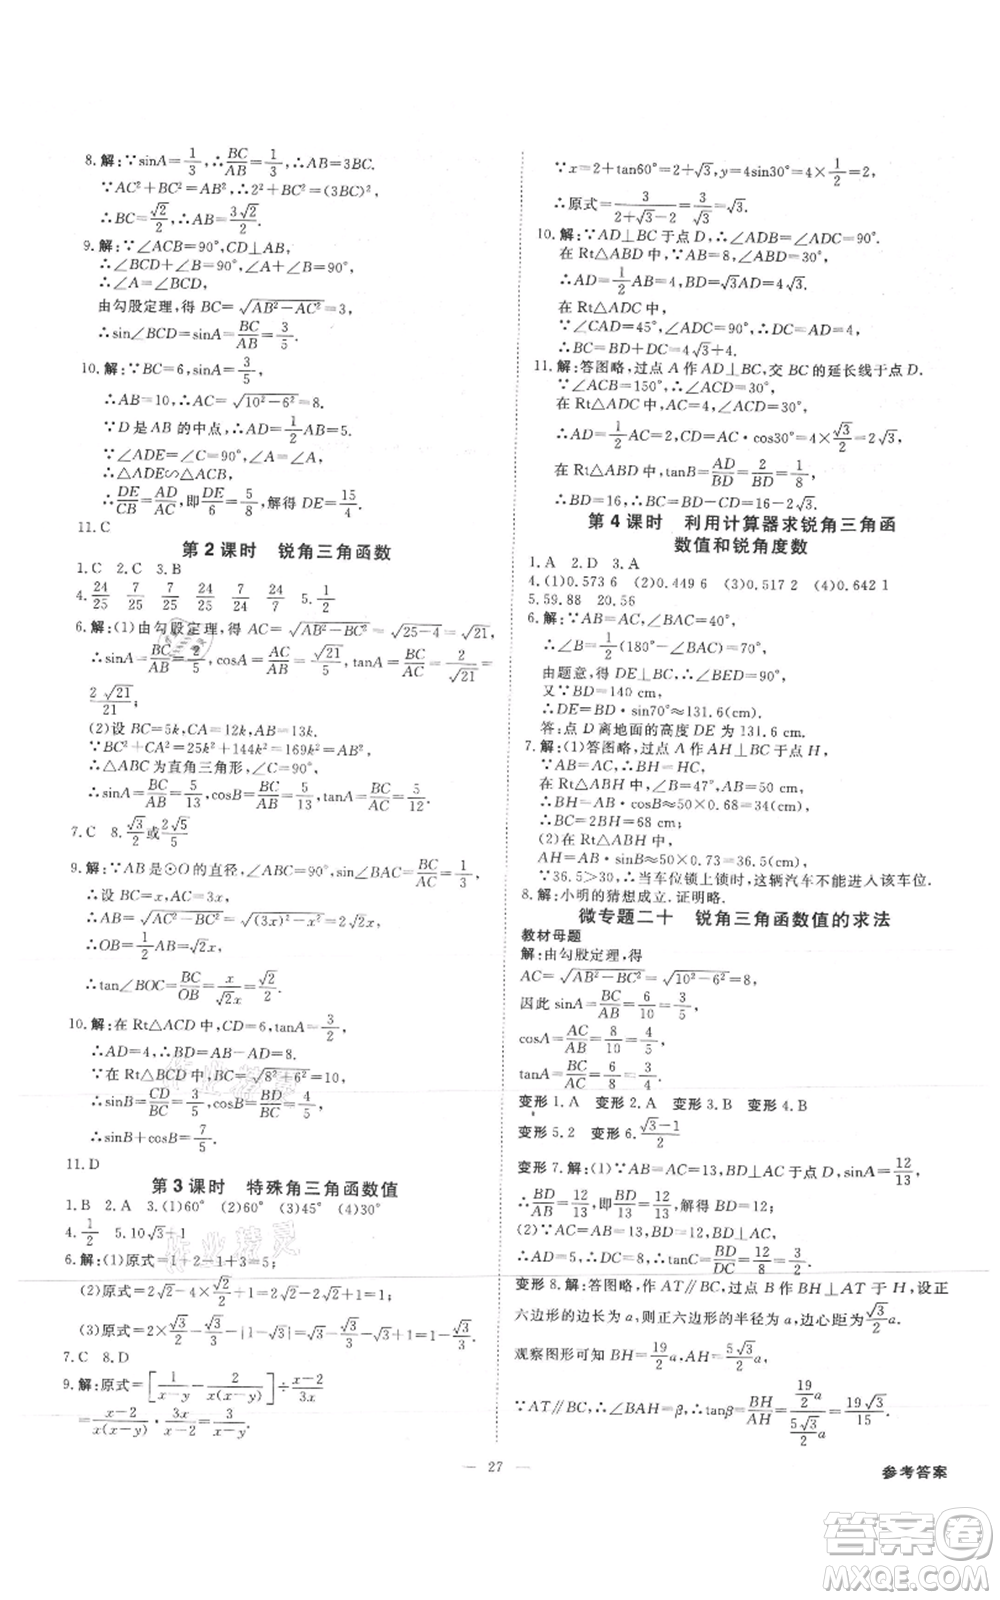 8. 解:∵sinA=1/3,∴BC/AB=1/3,∴AB=3BC.
∵AC²+BC²=AB²,∴2²+BC²=(3BC)²,
∴BC=√2/2,∴AB=3√2/2.
9. 解:∵∠ACB=90°,CD⊥AB,
∴∠BCD+∠B=90°,∠A+∠B=90°,
∴∠A=∠BCD.
由勾股定理,得 BC=√(AB²-AC²)=3,
∴sin∠BCD=sinA=BC/AB=3/5.
10. 解:∵BC=6,sinA=3/5,
∴AB=10,∴AC=√(10²-6²)=8.
∵D 是 AB 的中点,∴AD=1/2AB=5.
∵∠ADE=∠C=90°,∠A=∠A,
∴△ADE∽△ACB,
∴DE/CB=AD/AC,即DE/6=5/8,解得 DE=15/4.
11. C
第 2 课时 锐角三角函数
1. C 2. C 3. B
4. 24/25 7/25 7/25 24/25 24/7 7/24 5. 1/2
6. 解:(1)由勾股定理,得 AC=√(AB²-BC²)=√(25-4)=√21,
∴sinA=BC/AB=2/5,cosA=AC/AB=√21/5,tanA=BC/AC=2/√21=
2√21/21;
(2)设 BC=5k,CA=12k,AB=13k.
∵BC²+CA²=25k²+144k²=169k²=AB²,
∴△ABC为直角三角形,∠C=90°,
∴sinA=BC/AB=5/13,cosB=BC/AB=5/13,tanA=BC/AC=5/12.
7. C 8. √3/2或2√5/5
9. 解:∵AB是⊙O的直径,∠ABC=90°,sinA=BC/AC=1/3,
∴设 BC=x,AC=3x,
∴AB=√(AC²-BC²)=√((3x)²-x²)=2√2x,
∴OB=1/2AB=√2x,
∴tan∠BOC=BC/OB=x/√2x=√2/2.
10. 解:在 Rt△ACD 中,CD=6,tanA=3/2,
∴AD=4,∴BD=AB-AD=8.
∵在 Rt△BCD 中,BC=√(8²+6²)=10,
∴sinB=CD/BC=3/5,cosB=BD/BC=4/5,
∴sinB+cosB=7/5.
11. D
第 3 课时 特殊角三角函数值
1. B 2. A 3. (1)60° (2)60° (3)45° (4)30°
4. 1/2 5. 10√3+1
6. 解:(1)原式=1+2-1+3=5;
(2)原式=2√2-4×√2/2+1=2√2-2√2+1=1;
(3)原式=2×√3/2-|1-√3|+1/2=√3-√3+1+1/2=3/2.
7. C 8. D
9. 解:原式=[1/(x-y)-2/(x(x-y))]÷(x-2)/3x
=(x-2)/(x(x-y))·3x/(x-2)=3/(x-y).
∵x=2+tan60°=2+√3,y=4sin30°=4×1/2=2,
∴原式=3/(2+√3-2)=3/√3=√3.
10. 解:∵AD⊥BC 于点 D,∴∠ADB=∠ADC=90°.
在 Rt△ABD 中,∵AB=8,∠ABD=30°,
∴AD=1/2AB=4,BD=√3AD=4√3.
在 Rt△ADC 中,
∵∠CAD=45°,∠ADC=90°,∴DC=AD=4,
∴BC=BD+DC=4√3+4.
11. 解:答图略,过点 A 作 AD⊥BC,交 BC 的延长线于点 D.
∵∠ACB=150°,∴∠ACD=30°.
在 Rt△ADC 中,AC=4,∠ACD=30°,
∴AD=1/2AC=2,CD=AC·cos30°=4×√3/2=2√3.
在 Rt△ABD 中,tanB=AD/BD=2/BD=1/8,
∴BD=16,∴BC=BD-CD=16-2√3.
第 4 课时 利用计算器求锐角三角函
数值和锐角度数
1. A 2. D 3. A
4. (1)0.573 6 (2)0.449 6 (3)0.517 2 (4)0.642 1
5. 59.88 20.56
6. 解:∵AB=AC,∠BAC=40°,
∴∠B=1/2(180°-∠BAC)=70°.
由题意,得 DE⊥BC,∴∠BED=90°,
又∵BD=140 cm,
∴DE=BD·sin70°≈131.6(cm).
答:点 D 离地面的高度 DE 为 131.6 cm.
7. 解:(1)答图略,过点 A 作 AH⊥BC于点 H,
∵AB=AC,∴BH=HC.
在 Rt△ABH 中,∠B=47°,AB=50,
∴BH=AB·cosB≈50×0.68=34(cm),
∴BC=2BH=68(cm);
(2)在 Rt△ABH 中,
AH=AB·sinB≈50×0.73=36.5(cm),
∵36.5>30,∴当车位锁上锁时,这辆汽车不能进入该车位.
8. 解:小明的猜想成立.证明略.
微专题二十 锐角三角函数值的求法
教材母题
解:由勾股定理,得
AC=√(AB²-BC²)=√(10²-6²)=8,
因此 sinA=BC/AB=6/10=3/5,
cosA=AC/AB=8/10=4/5,
tanA=BC/AC=6/8=3/4.
变形 1. A 变形 2. A 变形 3. B 变形 4. B
变形 5. 2 变形 6. (√3-1)/2
变形 7. 解:(1)∵AC=AB=13,BD⊥AC,sinA=12/13,
∴BD/AB=12/13,即BD/13=12/13,解得 BD=12;
(2)∵AC=AB=13,BD=12,BD⊥AC,
∴AD=5,∴DC=8,∴tanC=BD/DC=12/8=3/2.
变形 8. 解:答图略,作 AT∥BC,过点 B 作 BH⊥AT于 H,设正
六边形的边长为 a,则正六边形的半径为 a,边心距=√3/2a,
观察图形可知 BH=19/2a,AH=5√3/2a,
∵AT∥BC,∴∠BAH=β,∴tanβ=BH/AH=(19/2a)/(5√3/2a)=19√3/15.
— 27 —
参考答案
答案卷
MXQE.COM